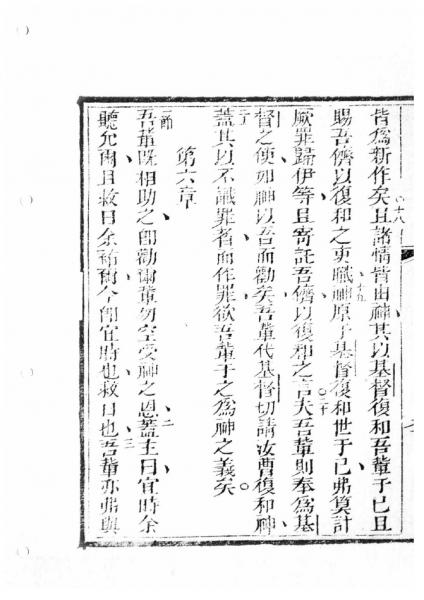 皆為新作矣且諸情皆由神其以基督復和吾輩于已且
賜吾儕以復和之吏職神原于基督復和世于已弗算計
厥罪歸伊等且寄託吾儕以復和之言夫吾輩則奉為基
督之使如神以吾而勸矣吾輩代基督切請汝曹復和神
蓋其以不識罪者而作罪欲吾輩于之為神之義矣
第六章
吾輩既相助之卽勸爾輩勿空受神之恩蓋主曰宜時余
聽允爾且救日余祐爾今卽宜時也救日也吾輩亦弗與